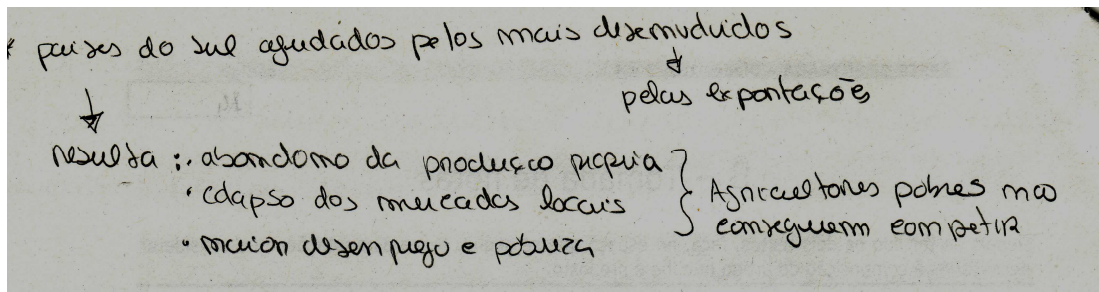 * países do sul ajudados pelos mais desenvolvidos
↓
pelas exportações
↓
resulta: · abandono da produção própria
· colapso dos mercados locais
· maior desemprego e pobreza
} Agricultores pobres não
conseguem competir